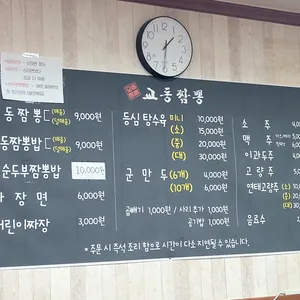 교동짬뽕
동짬뽕 (매콤) (덜매콤) 9,000원
동짬뽕밥 (매콤) (덜매콤) 9,000원
순두부짬뽕밥 10,000원
자장면 6,000원
어린이짜장 3,000원
등심탕수육 미니 10,000원
(소) 15,000원
(중) 20,000원
(대) 30,000원
군만두 (6개) 4,000원
(10개) 6,000원
곱빼기 1,000원 / 사리추가 1,000원
공기밥 1,000원
소주 4,0
맥주 4,
이과두주
고량주 5,
연태고량주 (소)
(대)
음료수
* 주문 시 즉석 조리 함으로 시간이 다소 지연될 수 있습니다.